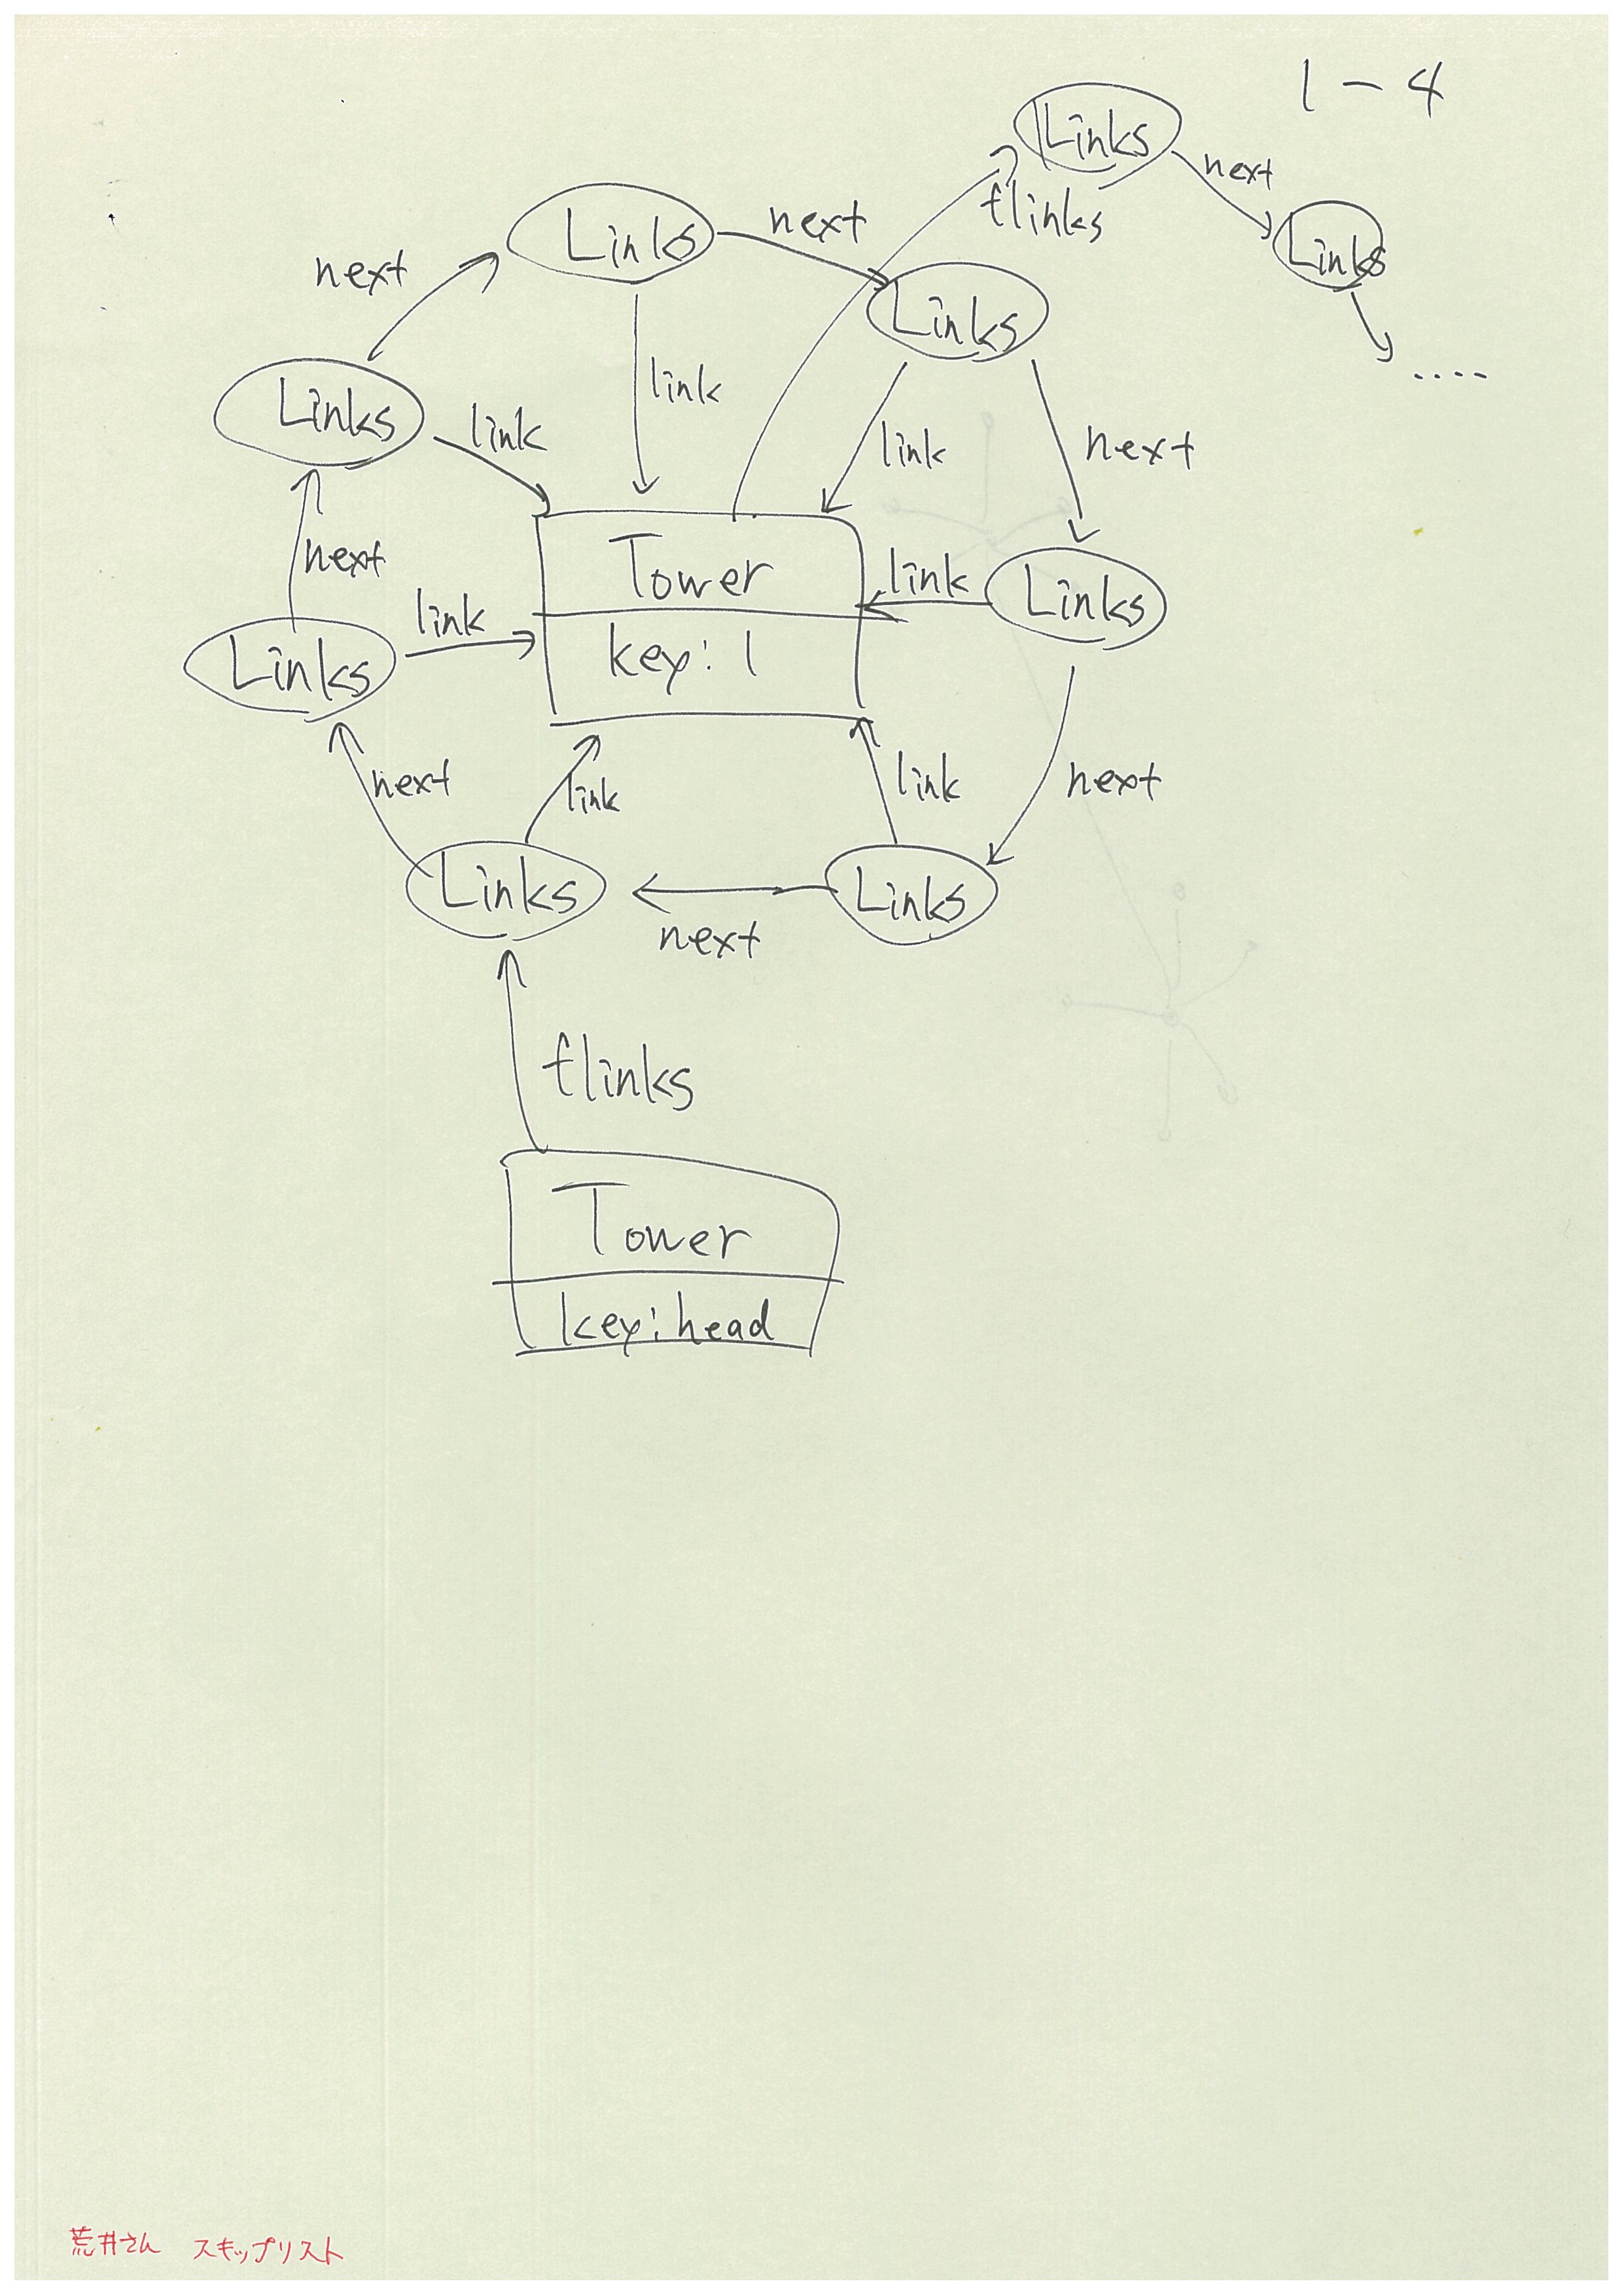 1-4
Links
next
flinks
Links
Links
next
next
Links
....
Links
link
link
link
next
next
Tower
key: 1
link
Links
link
Links
next
link
link
next
Links
Links
next
flinks
Tower
key: head
荒井さん スキップリスト